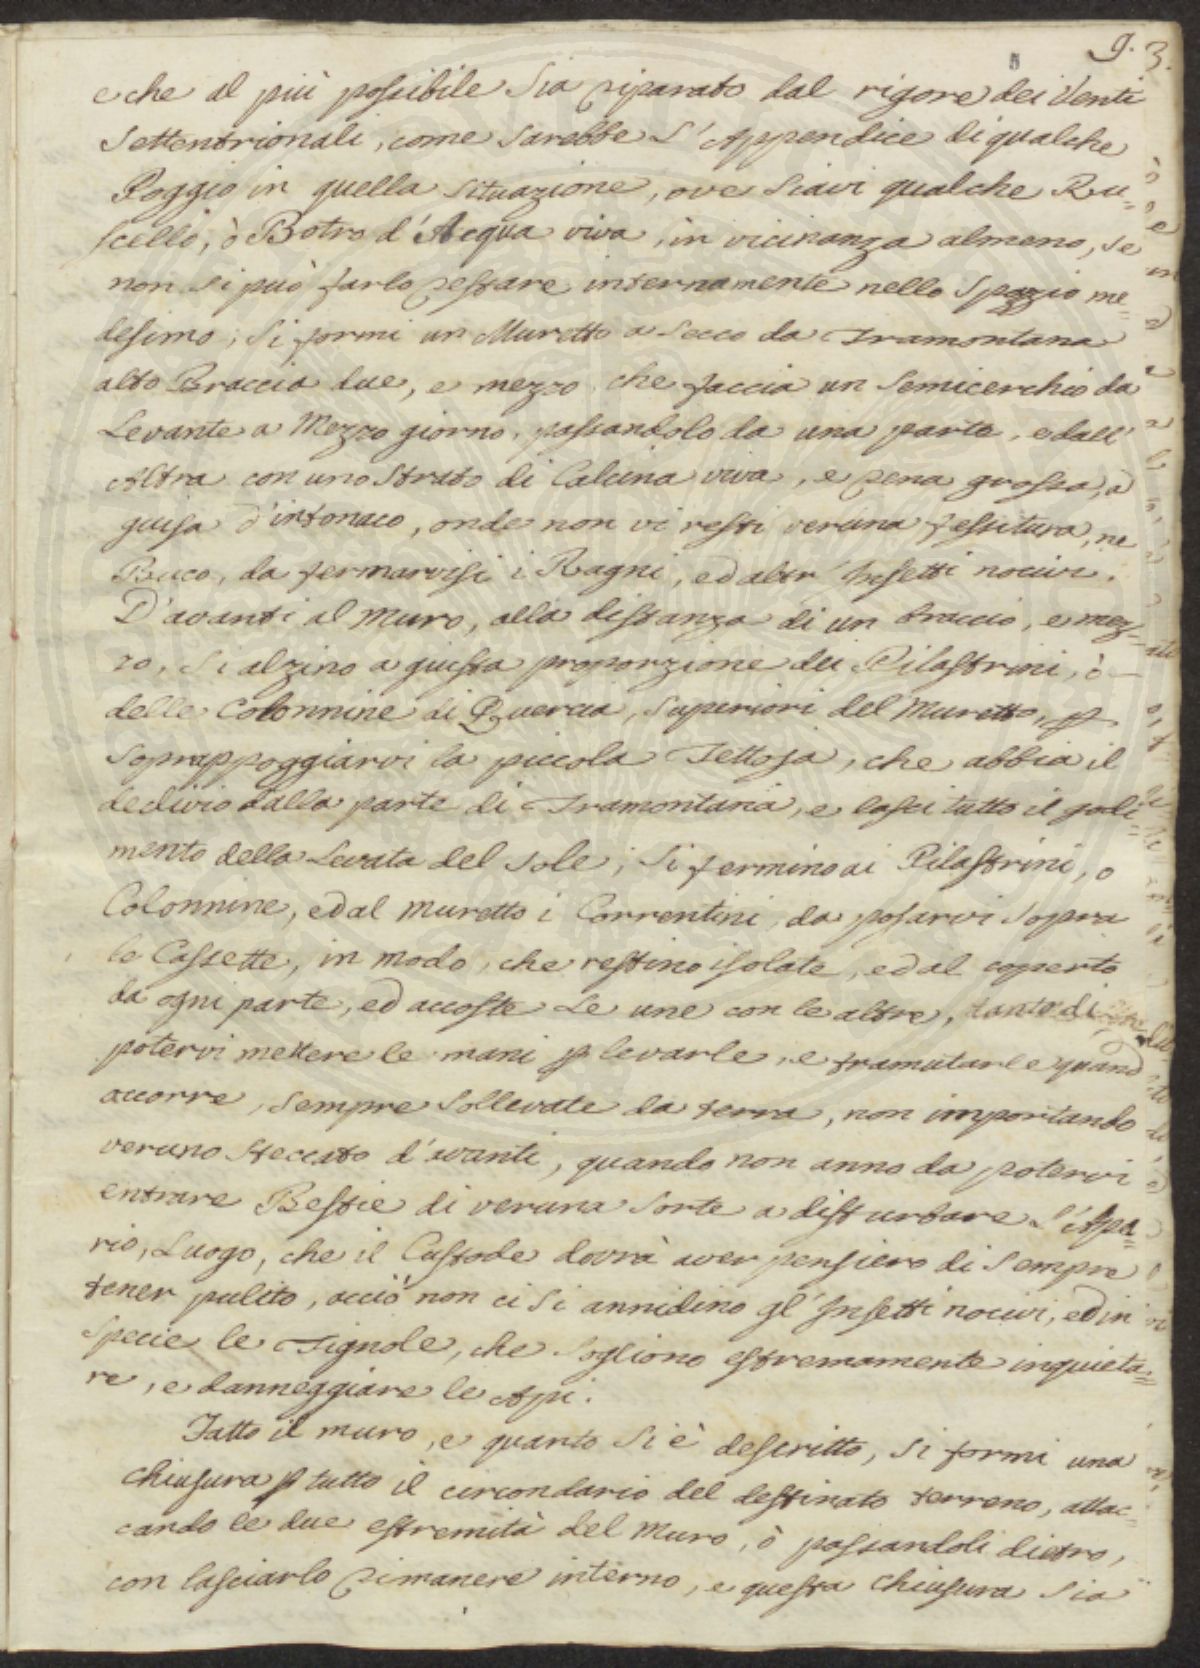 9. 3.
e che al più possibile sia riparato dal rigore dei Venti
Settentrionali, come sarebbe l'Appendice di qualche
Poggio in quella situazione, ove siavi qualche Ru=
scello, ò Botro d'Acqua viva, in vicinanza almeno, se
non si può farlo restare internamente nello Spazio me=
desimo; Si formi un Muretto a secco da Tramontana
alto Braccia due, e mezzo che faccia un semicerchio da
Levante a Mezzo giorno, passandolo da una parte, e dall'
Altra con uno Strato di Calcina viva, e rena grossa, a
guisa d'intonaco, onde non vi resti veruna fessitura, ne
Buco, da fermarvisi i Ragni, ed altr' Insetti nocivi.
D'avanti al Muro, alla distanza di un braccio, e mez=
zo, si alzino a giusta proporzione dei Pilastrini, ò
delle Colonnine di Quercia, superiori del Muretto, p
soprappoggiarvi la piccola Tettoja, che abbia il
declivio dalla parte di Tramontana, e lasci tutto il godi=
mento della Levata del Sole; Si fermino ai Pilastrini, o
Colonnine, ed al Muretto i Correntini, da posarvi sopra
le Cassette, in modo, che restino isolate, ed al coperto
da ogni parte, ed accoste le une con le altre, tanto di
potervi mettere le mani p levarle, e tramutarle quand
occorre, sempre sollevate da terra, non importando
veruno Steccato d'avanti, quando non anno da potervi
entrare Bestie di veruna sorte a disturbare l'Apia=
rio, Luogo, che il Custode dovrà aver pensiero di sempre
tener pulito, acciò non ci si annidino gl' Insetti nocivi, ed in
Specie le Tignole, che sogliono estremamente inquieta=
re, e danneggiare le Api.
Fatto il muro, e quanto si è descritto, si formi una
Chiusura p tutto il circondario del destinato terreno, attac=
cando le due estremità del Muro, ò passandoli dietro,
con lasciarlo rimanere interno, e questa Chiusura sia